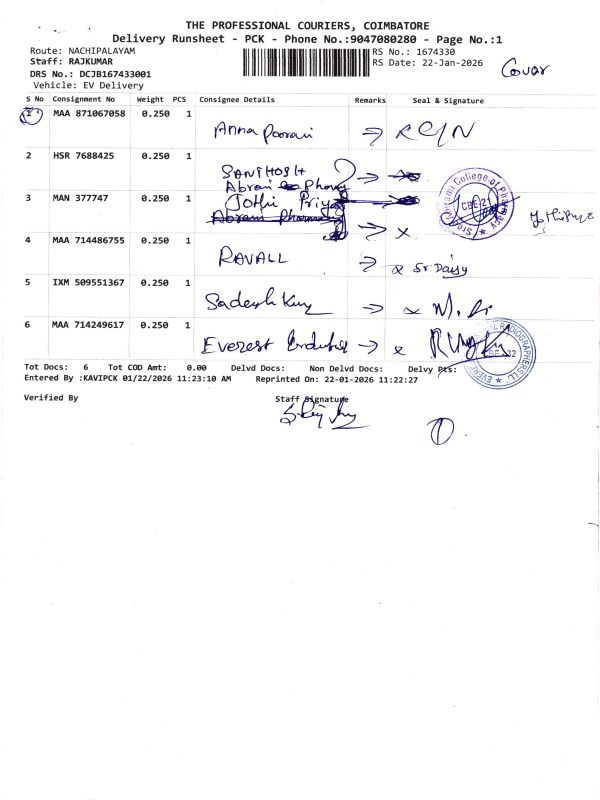 THE PROFESSIONAL COURIERS, COIMBATORE
Delivery Runsheet - PCK - Phone No.:9047080280 - Page No.:1
Route: NACHIPALAYAM
RS No.: 1674330
Staff: RAJKUMAR
RS Date: 22-Jan-2026
DRS No.: DCJB167433001
Cover
Vehicle: EV Delivery
S No Consignment No Weight PCS Consignee Details Remarks Seal & Signature
1 MAA 871067058 0.250 1
Anna Poorani
2 HSR 7688425 0.250 1
SANTHOSH
Abrami
3 MAN 377747 0.250 1
Jothi Priya
Abrami Pharmacy
College of Pharmacy
4 MAA 714486755 0.250 1
RAVALL
Sr Daisy
5 IXM 509551367 0.250 1
6 MAA 714249617 0.250 1
Everest
RADIOGRAPHERS
Tot Docs: 6 Tot COD Amt: 0.00 Delvd Docs: Non Delvd Docs: Delvy Pts:
Entered By :KAVIPCK 01/22/2026 11:23:10 AM Reprinted On: 22-01-2026 11:22:27
Verified By Staff Signature